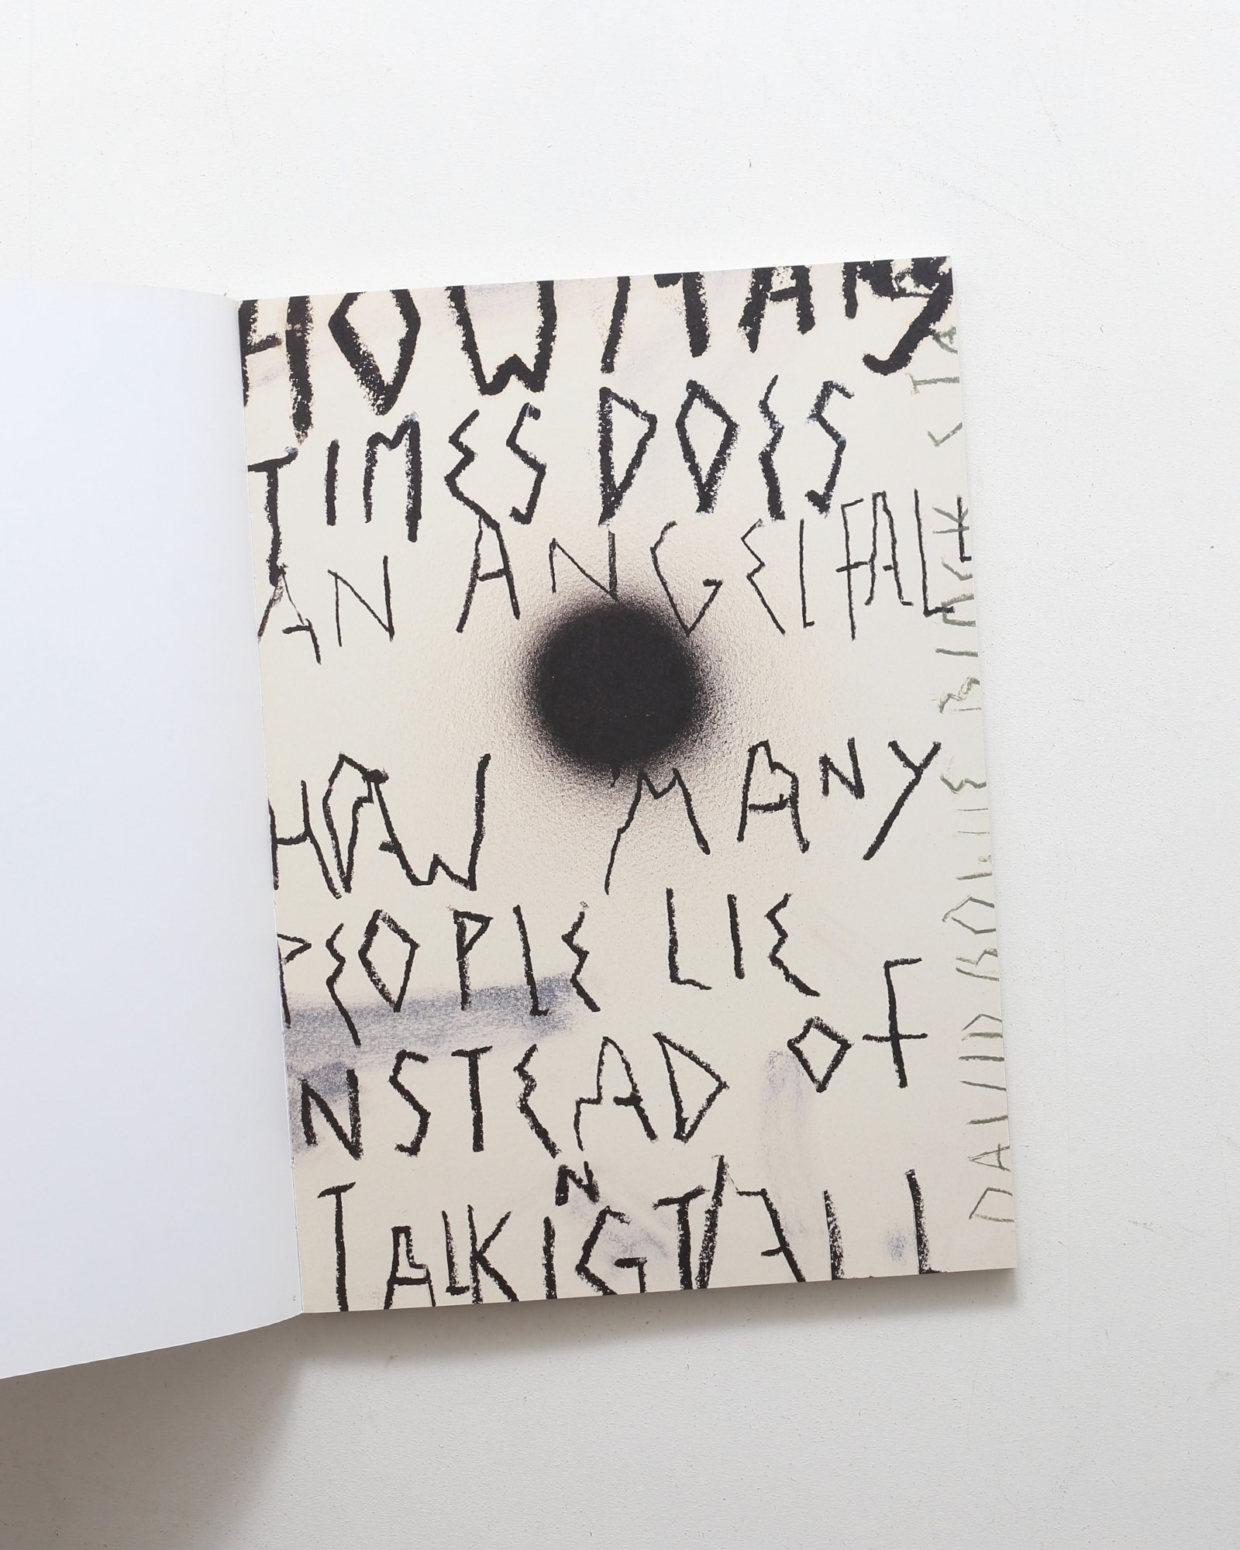 HOW MANY
TIMES DOES
AN ANGEL FALL
HOW MANY
PEOPLE LIE
INSTEAD OF
TALKING TALL
DAVID BOWIE BLACK STA